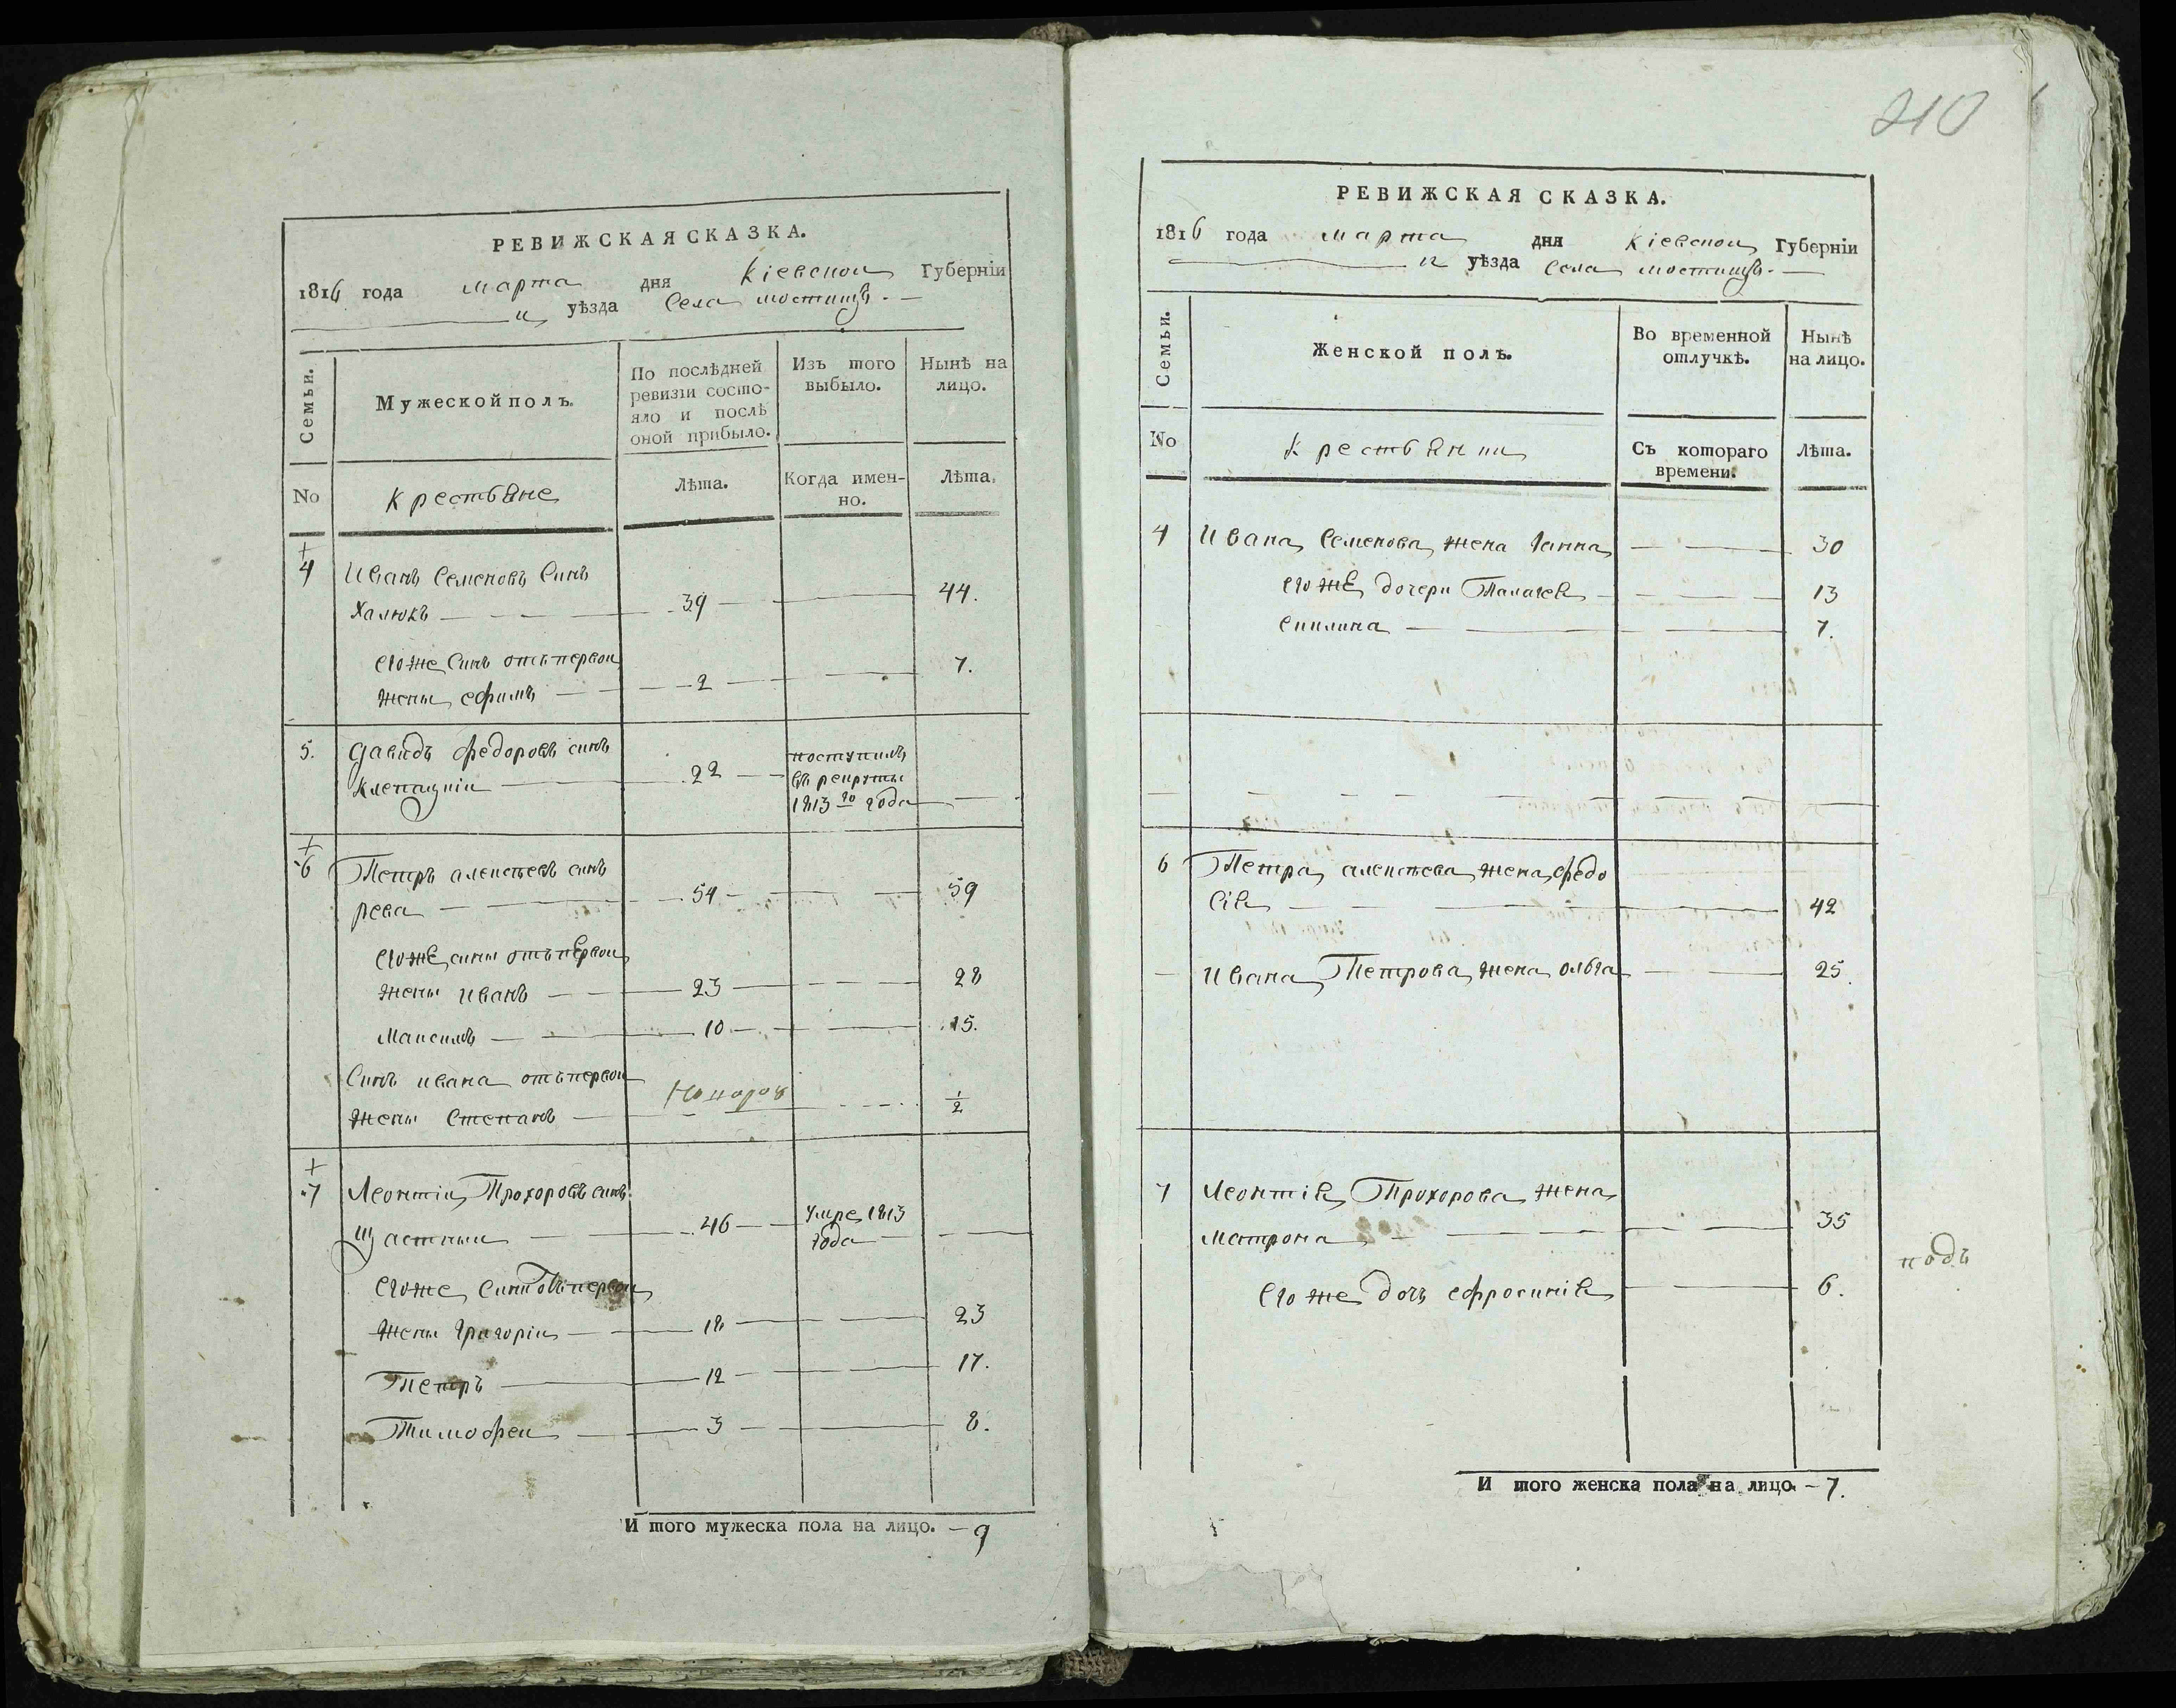 РЕВИЖСКАЯ СКАЗКА.
1816 года марта дня Кіевской Губерніи
й уѣзда Села мостищъ.
Семьи.
Мужеской полъ.
По послѣдней ревизіи состо-
яло и послѣ
оной прибыло.
Изъ того
выбыло.
Нынѣ на
лицо.
No
Крестьяне
Лѣта.
Когда имен-
но.
Лѣта.
4 Иванъ Семеновъ Синъ
Халюкъ 39 44.
Его же Синъ отъ первой
жены ефимъ 2 7.
5. Давидъ федоровъ синъ
22 поступилъ
въ рекруты
1813 го года
6 Петръ алексѣевъ синъ
рева 54 59
Его же сины отъ первой
жены иванъ 23 28
Максимъ 10 15.
Синъ ивана отъ первой
жены Степанъ 1/2
7 Леонтій Прохоровъ синъ
Щастный 46 умре 1813
года
Его же Сини отъ первой
жены григорій 18 23
Петръ 12 17.
Тимофей 3 8.
И того мужеска пола на лицо. - 9
210
РЕВИЖСКАЯ СКАЗКА.
1816 года марта дня Кіевской Губерніи
й уѣзда Села мостищъ.
Семьи.
Женской полъ.
Во временной
отлучкѣ.
Нынѣ
на лицо.
No
Крестьянки
Съ котораго
времени.
Лѣта.
4 Ивана Семенова жена Ганна 30
его же дочери Палагея 13
Акилина 7.
6 Петра алексѣева жена федо
сія 42
Ивана Петрова жена ольга 25.
7 Леонтія Прохорова жена
Матрона 35
Его же дочь ефросинія 6.
подъ
И того женска пола на лицо. - 7.